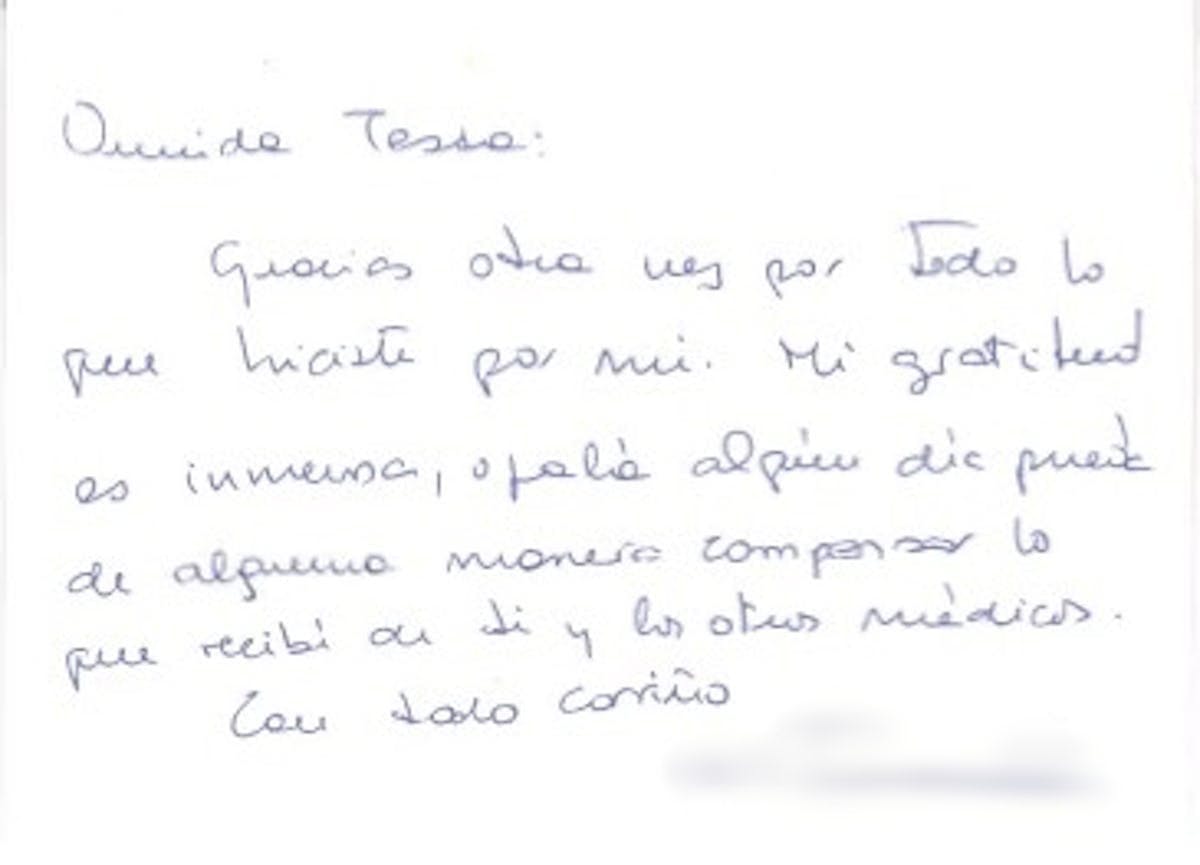 Querida Tessa:
Gracias otra vez por todo lo
que hiciste por mi. Mi gratitud
es inmensa, ojalà algún dia pueda
de alguna manera compensar lo
que recibí de ti y los otros mèdicos.
Con todo cariño